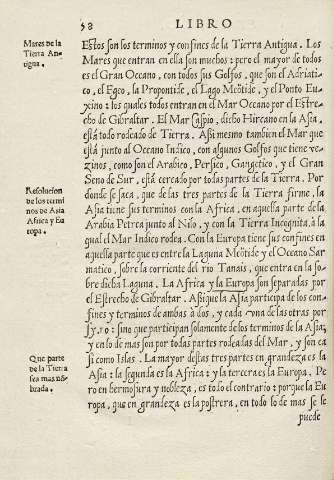 58 LIBRO
Mares de la
Tierra An-
tigua.
Estos son los terminos y confines de la Tierra Antigua. Los
Mares que entran en ella son muchos: pero el mayor de todos
es el Gran Occano, con todos sus Golfos, que son el Adriati-
co, el Egeo, la Propontide, el Lago Meótide, y el Ponto Eu-
xino: los quales todos entran en el Mar Occano por el Estre-
cho de Gibraltar. El Mar Caspio, dicho Hircano en la Asia,
está todo rodeado de Tierra. Asi mesmo tambien el Mar que
está junto al Oceano Indico, con algunos Golfos que tiene ve-
zinos, como son el Arabico, Persico, Gangetico, y el Gran
Seno de Sur, está cercado por todas partes de la Tierra. Por
donde se saca, que de las tres partes de la Tierra firme, la
Asia tiene sus terminos con la Africa, en aquella parte de la
Arabia Petrea junto al Nilo, y con la Tierra Incognita, à la
qual el Mar Indico rodea. Con la Europa tiene sus confines en
aquella parte que es entre la Laguna Meótide y el Oceano Sar
matico, sobre la corriente del rio Tanais, que entra en la so-
bre dicha Laguna. La Africa y la Europa son separadas por
el Estrecho de Gibraltar. Asique la Asia participa de los con-
fines y terminos de ambas à dos, y cada una de las otras por
sino que participan solamente de los terminos de la Asia;
y en lo de mas son por todas partes rodeadas del Mar, y son ca
si como Islas. La mayor destas tres partes en grandeza es la
Asia: la segunda es la Africa: y la tercera es la Europa. Pe
ro en hermosura y nobleza, es todo el contrario: porque la Eu
ropa, que en grandeza es la postrera, en todo lo de mas se le
puede
Resolucion
de los termi
nos de Asia
Africa y Eu
ropa.
Que parte
de la Tierra
sea mas nõ-
brada.